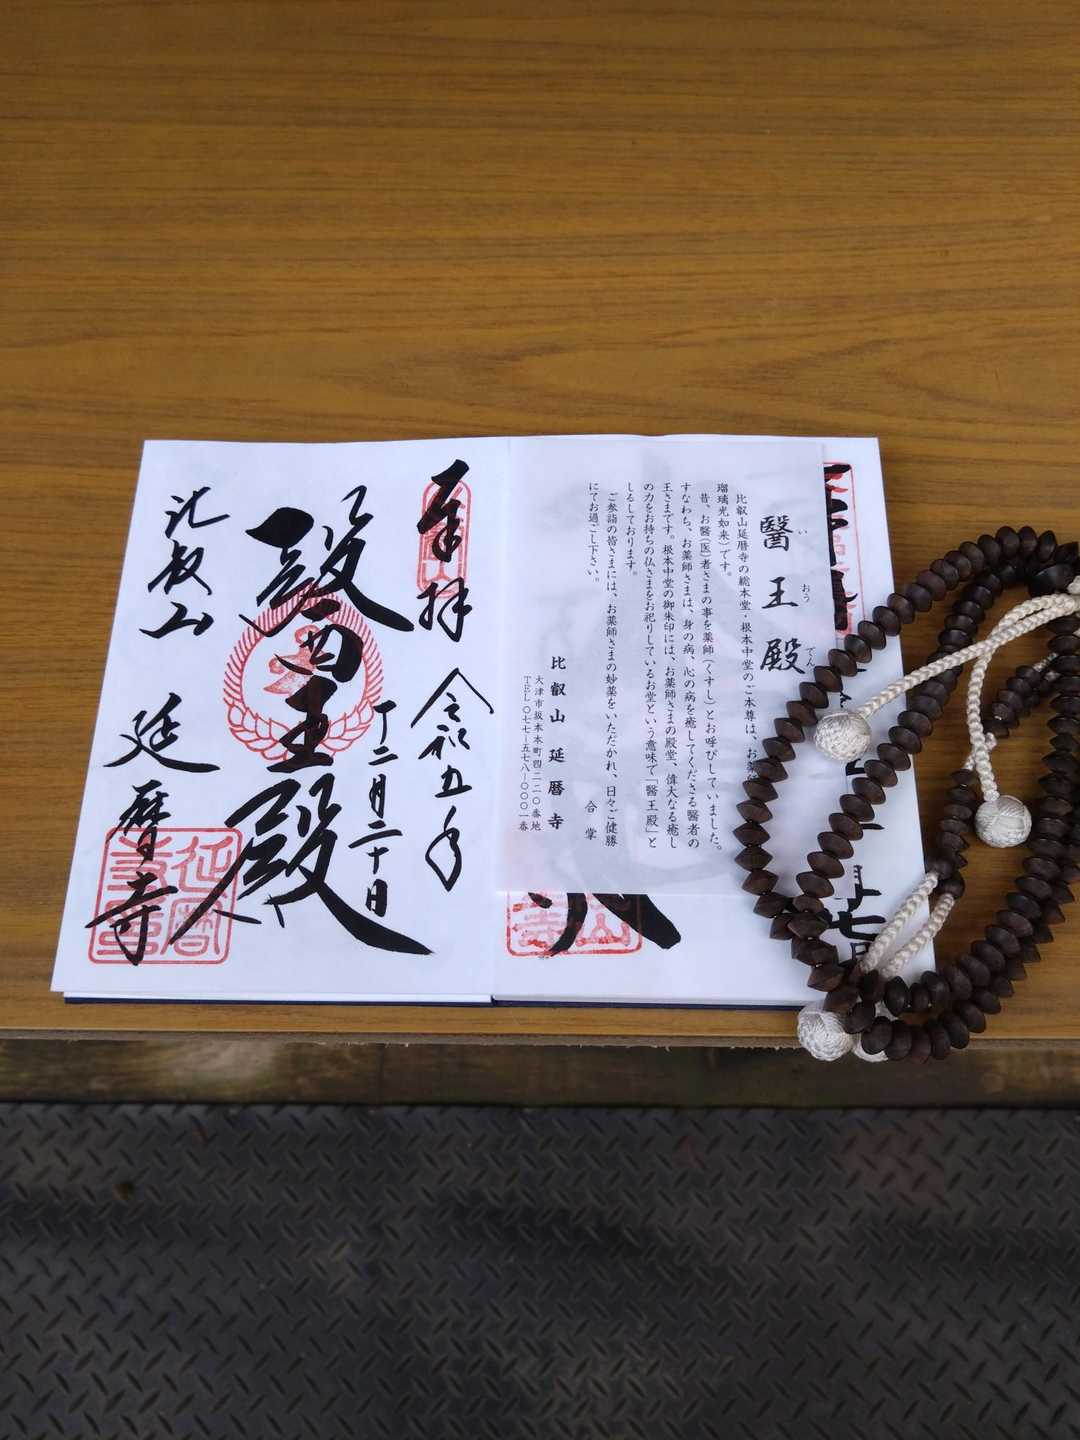 醫王殿
いおうでん
比叡山延暦寺の総本堂・根本中堂のご本尊は、お薬
瑠璃光如来）です。
昔、お醫(医)者さまの事を薬師(くすし)とお呼びしていました。
すなわち、お薬師さまは、身の病、心の病を癒してくださる醫者の
王さまです。根本中堂の御朱印には、お薬師さまの殿堂、偉大なる癒し
の力をお持ちの仏さまをお祀りしているお堂という意味で「醫王殿」と
しるしております。
ご参詣の皆さまには、お薬師さまの妙薬をいただかれ、日々ご健勝
にてお過ごし下さい。
合掌
比叡山延暦寺
大津市坂本本町四二二〇番地
TEL〇七七-五七八-〇〇〇一番
奉拝 令和五年
十二月二十日
醫王殿
比叡山 延暦寺